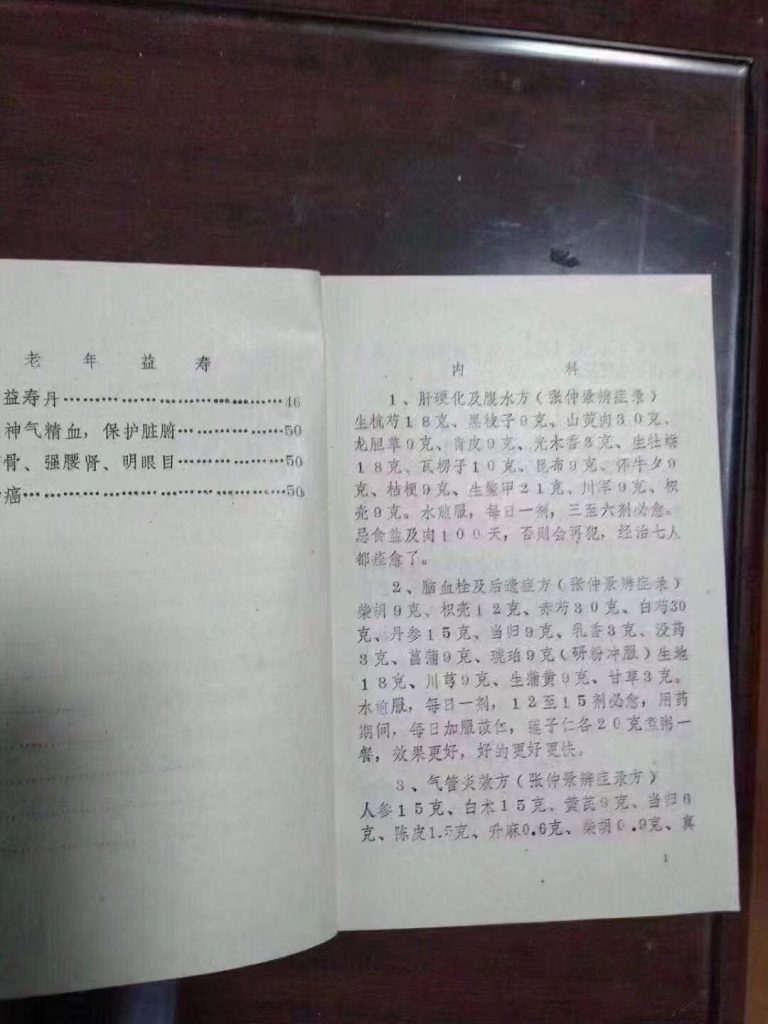 老年益寿
益寿丹……………………………46
神气精血，保护脏腑……………50
骨、强腰肾、明眼目……………50
癌……………………………………50
内科
1、肝硬化及腹水方（张仲景辨症录）
生杭芍18克、黑栀子9克、山萸肉30克、
龙胆草9克、青皮9克、光木香3克、生牡蛎
18克、瓦楞子10克、昆布9克、怀牛夕9
克、桔梗9克、生鳖甲21克、川军9克、枳
壳9克。水煎服，每日一剂，三至六剂必愈。
忌食盐及肉100天，否则会再犯，经治七人
都痊愈了。
2、脑血栓及后遗症方（张仲景辨症录）
柴胡9克、枳壳12克、赤芍30克、白芍30
克、丹参15克、当归9克、乳香3克、没药
3克、菖蒲9克、琥珀9克（研粉冲服）生地
18克、川芎9克、生蒲黄9克、甘草3克。
水煎服，每日一剂，12至15剂必愈，用药
期间，每日加服苡仁，莲子仁各20克煮粥一
餐，效果更好，好的更好更快。
3、气管炎方（张仲景辨症录方）
人参15克、白术15克、黄芪9克、当归6
克、陈皮1.5克、升麻0.6克、柴胡0.9克、真
1